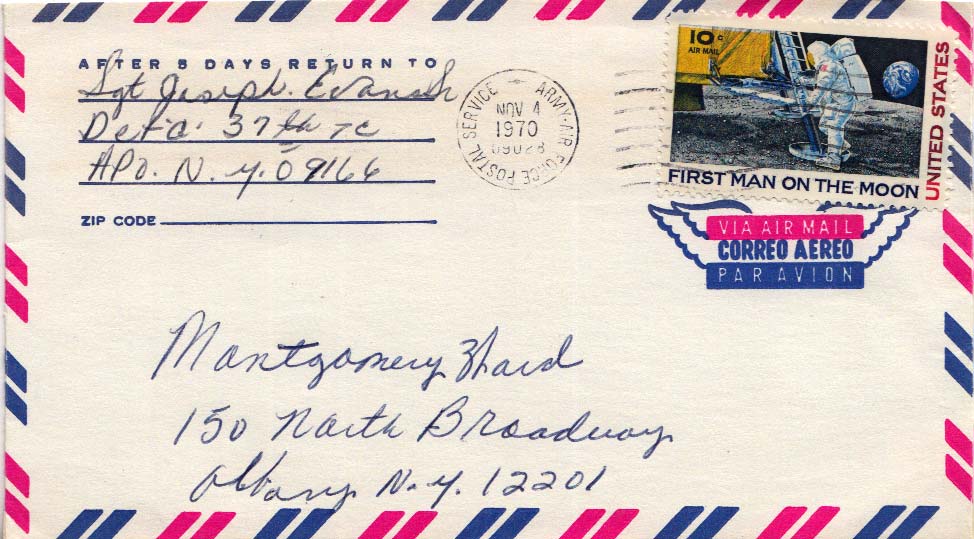 AFTER 5 DAYS RETURN TO
Sgt Joseph. Evans
Det a. 37th TC
APO. N.Y. 09166
ZIP CODE
ARMY-AIR FORCE POSTAL SERVICE
NOV 4
1970
09028
10c
AIR MAIL
UNITED STATES
FIRST MAN ON THE MOON
VIA AIR MAIL
CORREO AEREO
PAR AVION
Montgomery
150 North Broadway
Albany N.Y. 12201